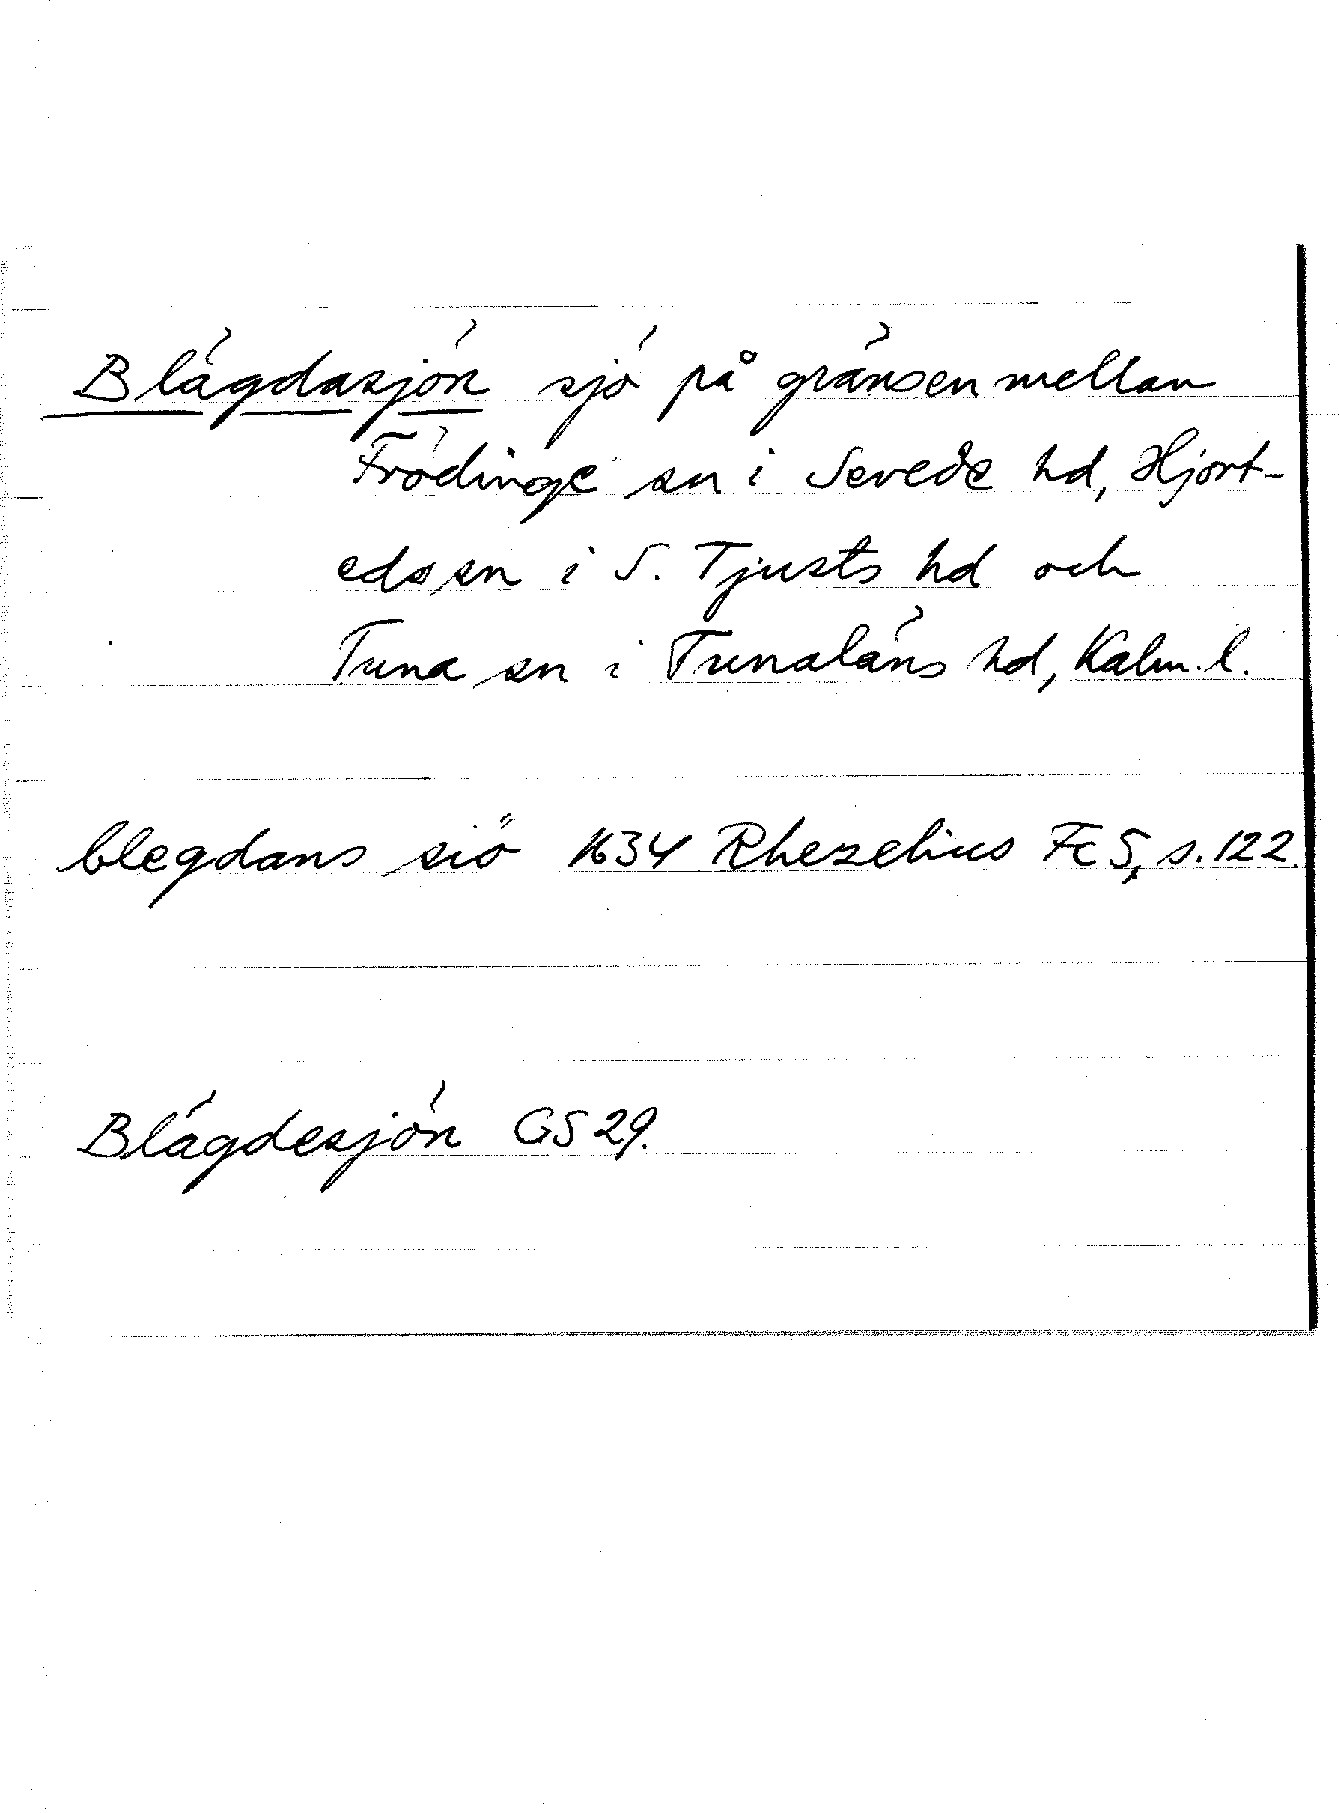 Blägdasjön sjö på gränsen mellan
Frödinge sn i Sevede hd, Hjort-
eds sn i S. Tjusts hd och
Tuna sn i Tunaläns hd, Kalm. l.
blegdans siö 1634 Rhezelius Fc 5, s. 122.
Blägdesjön GS 29.